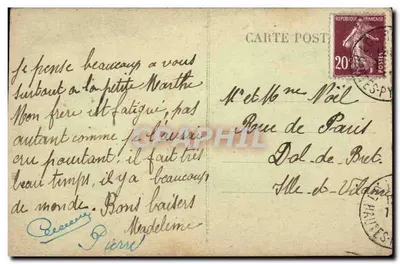 Je pense beaucoup a vous
surtout a la petite Marthe
Mon frere est fatigué, pas
autant comme j'aurai
cru pourtant. il fait très
beau temps, il y a beaucoup
de monde. Bons baisers
Madeleine
Pierre
CARTE POST
REPUBLIQUE FRANÇAISE
20
POSTES
Mr et Mme Noël
Rue de Paris
Dol-de-Bret.
Ille-et-Vilaine
CPAPHIL.COM